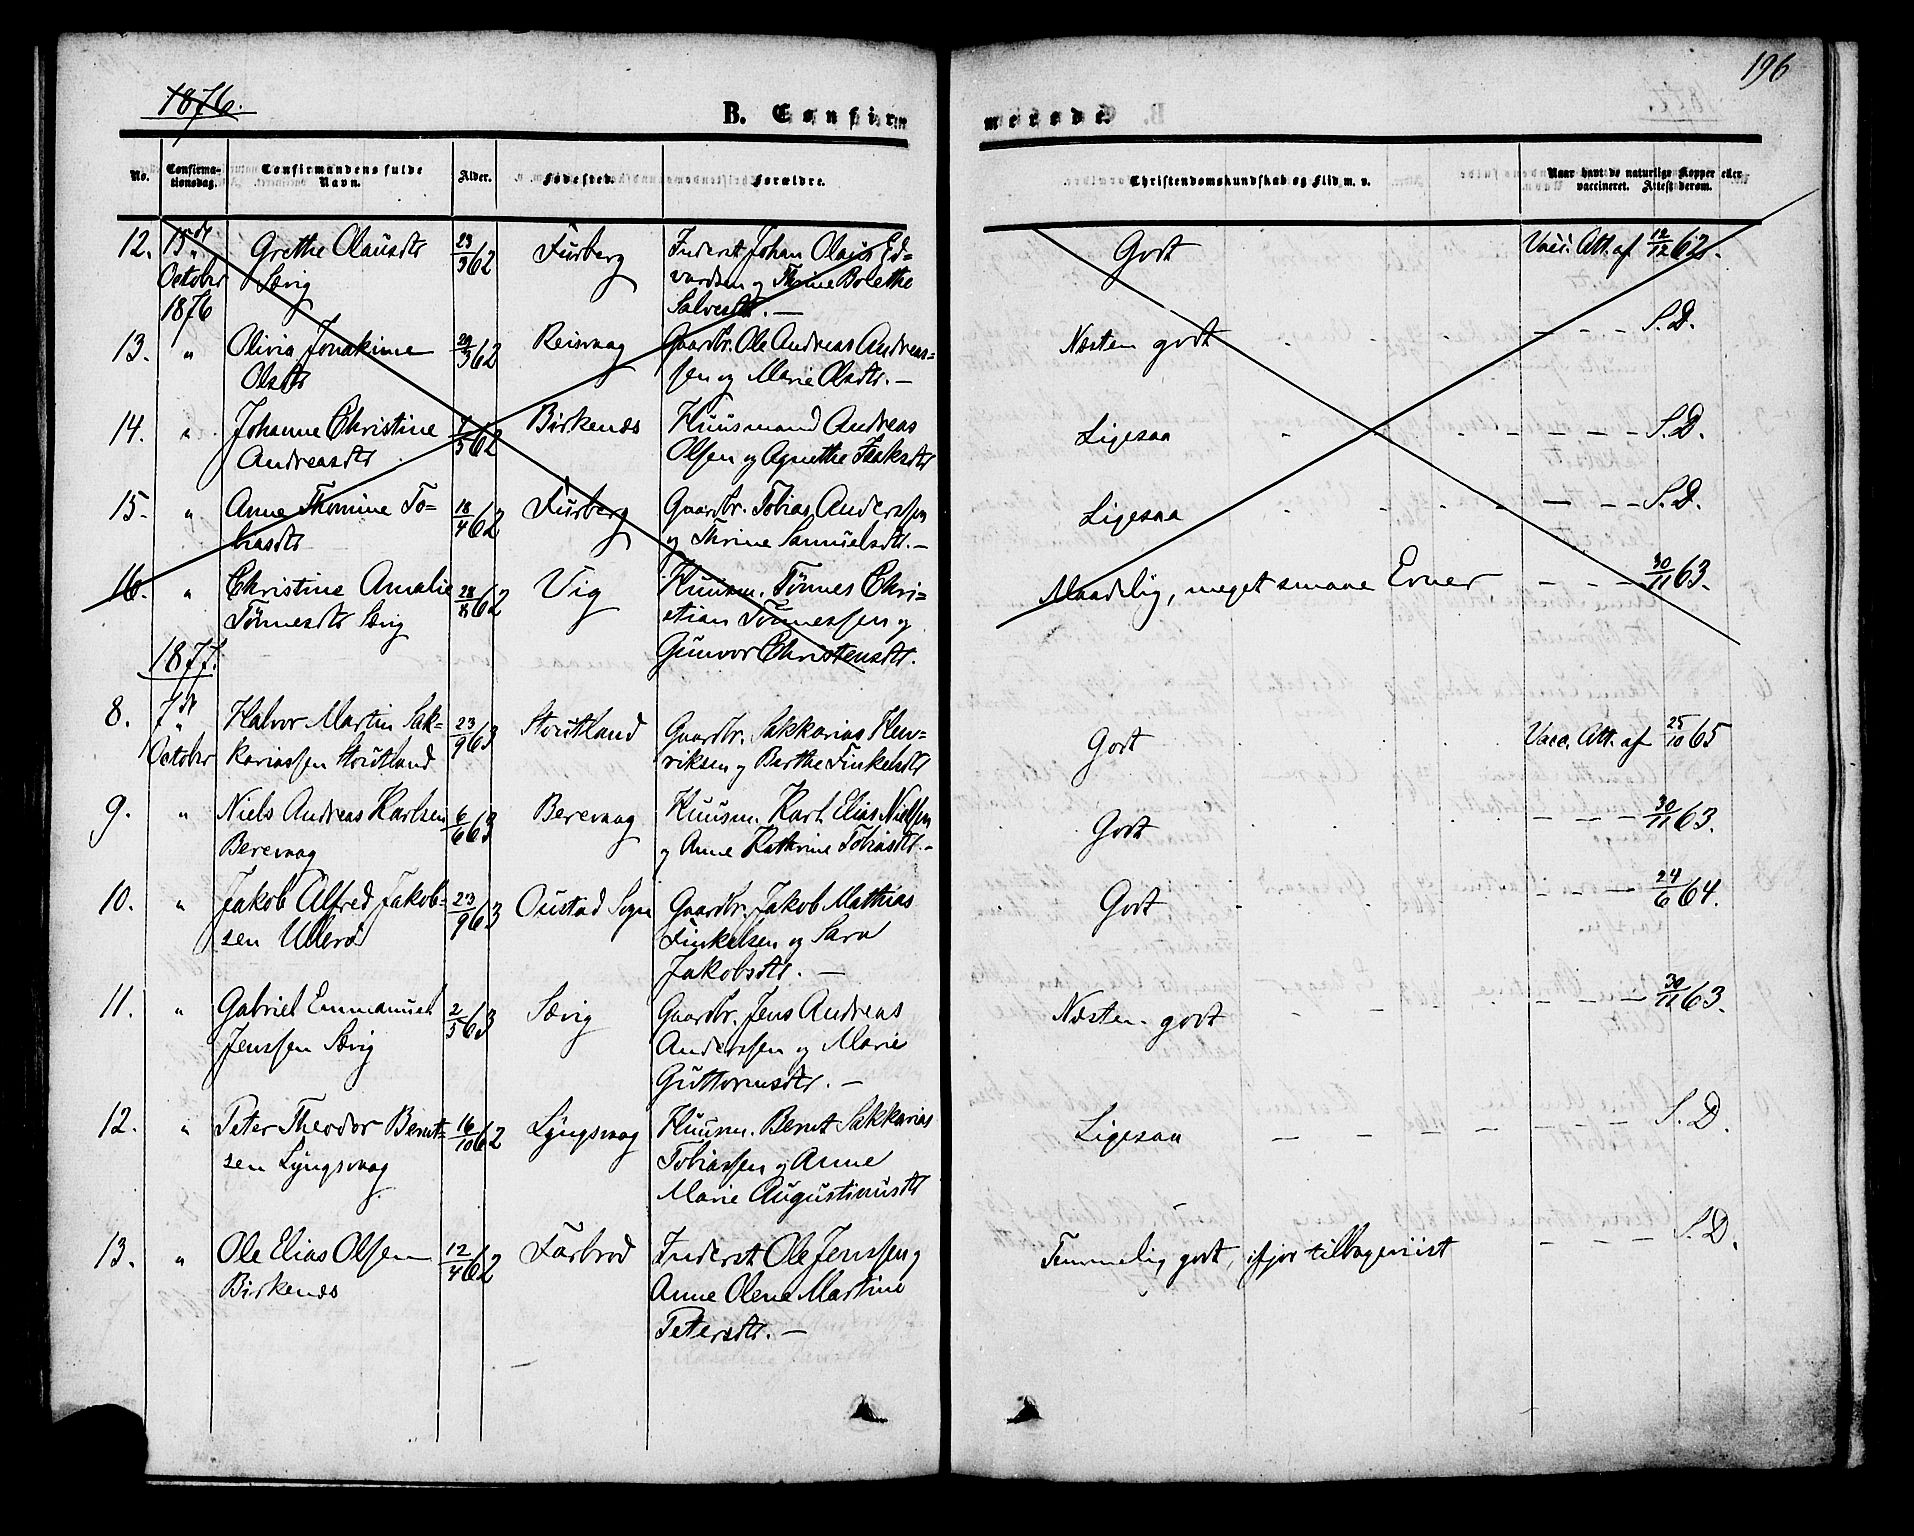 196
1876.
B. Confirmerede.
No.
Confirmationsdag.
Confirmandens fulde Navn.
Alder.
Fødested.
Forældre.
Christendomskundskab og Flid m. v.
Naar havt de naturlige Kopper eller vaccineret. Attest derom.
12. 15de October 1876 Grethe Olausdtr Sævig 23/3 62 Furberg Inderst Johan Olaus Edvardsen og Thrine Brethe Salvesdtr. — Godt Vacc. Att. af 12/12 62.
13. " Olivia Jonakime Olsdtr 29/3 62 Reisvaag Gaardbr. Ole Andreas Andreassen og Marie Olsdtr. — Næsten godt — — — S. D.
14. " Johanne Christine Andreasdtr 1/5 62 Birkenæs Huusmand Andreas Olsen og Agnethe Isaksdtr Ligesaa - - - S. D.
15. " Anne Thomine Tobiasdtr 18/4 62 Furberg Gaardbr. Tobias Anderssen og Thrine Samuelsdtr. — Ligesaa — - - S. D.
16. " Christine Amalie Tönnesdtr Sævig 28/8 62 Vig Huusm. Tönnes Christian Tönnessen og Gunvor Christensdtr. Maadelig, meget smaae Evner - - - 30/11 63.
1877.
8. 7de October Halvor Martin Sakkariassen Stoutland 23/9 63 Stoutland Gaardbr. Sakkarias Henriksen og Berthe Finkelsdtr Godt Vacc. Att. af 25/10 65
9. " Niels Andreas Karlsen Berevaag 6/6 63 Berevaag Huusm. Karl Elias Nielsen og Anne Kathrine Tobiasdtr. — Godt - - - 30/11 63.
10. " Jakob Alfred Jakobsen Ullerø 23/9 63 Oustad Sogn Gaardbr. Jakob Mathias Finkelsen og Sara Jakobsdtr. — Godt - - - 24/6 64.
11. " Gabriel Emmanuel Jenssen Sævig 2/5 63 Sævig Gaardbr. Jens Andreas Anderssen og Marie Guttormsdtr. — Næsten godt - - - 30/11 63.
12. " Peter Theodor Berntsen Lyngsvaag 16/10 62 Lyngsvaag Huusm. Bernt Sakkarias Tobiassen og Anne Marie Augustinusdtr Ligesaa — — — S. D.
13. " Ole Elias Olsen Birkenæs 12/4 62 Farbrod Inderst Ole Jenssen og Anne Olene Martine Petersdtr. — Temmelig godt, ifjor tilbageviist - - - S. D.